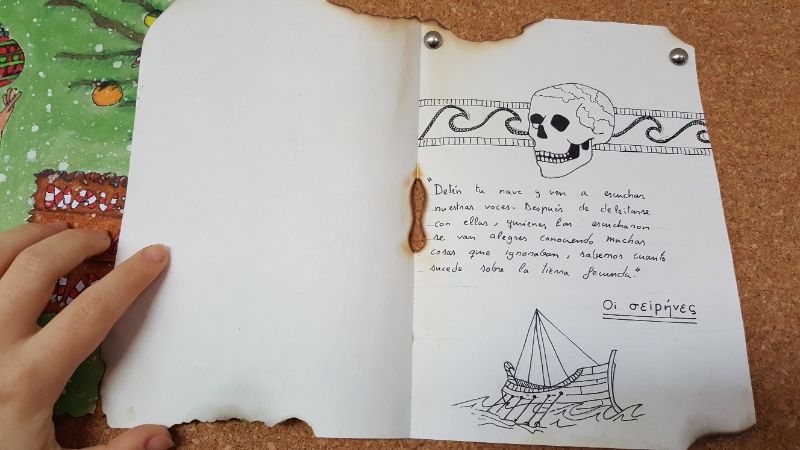 "Detén tu nave y ven a escuchar
nuestras voces. Después de deleitarse
con ellas, quienes las escucharon
se van alegres conociendo muchas
cosas que ignoraban, sabemos cuanto
sucede sobre la tierra fecunda."
Οι σειρήνες